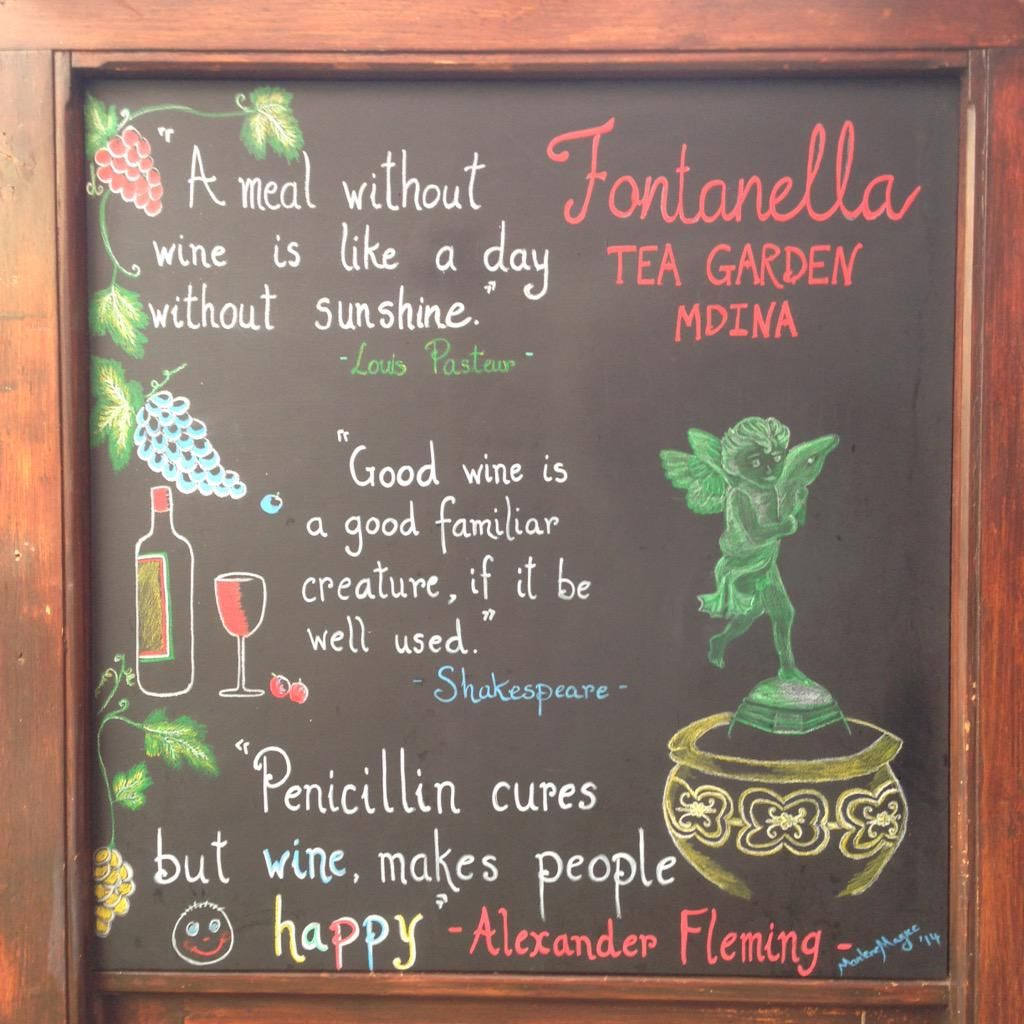 "A meal without
wine is like a day
without sunshine."
-Louis Pasteur-
Fontanella
TEA GARDEN
MDINA
"Good wine is
a good familiar
creature, if it be
well used."
- Shakespeare -
"Penicillin cures
but wine, makes people
happy" -Alexander Fleming-
Marlene Magee '14